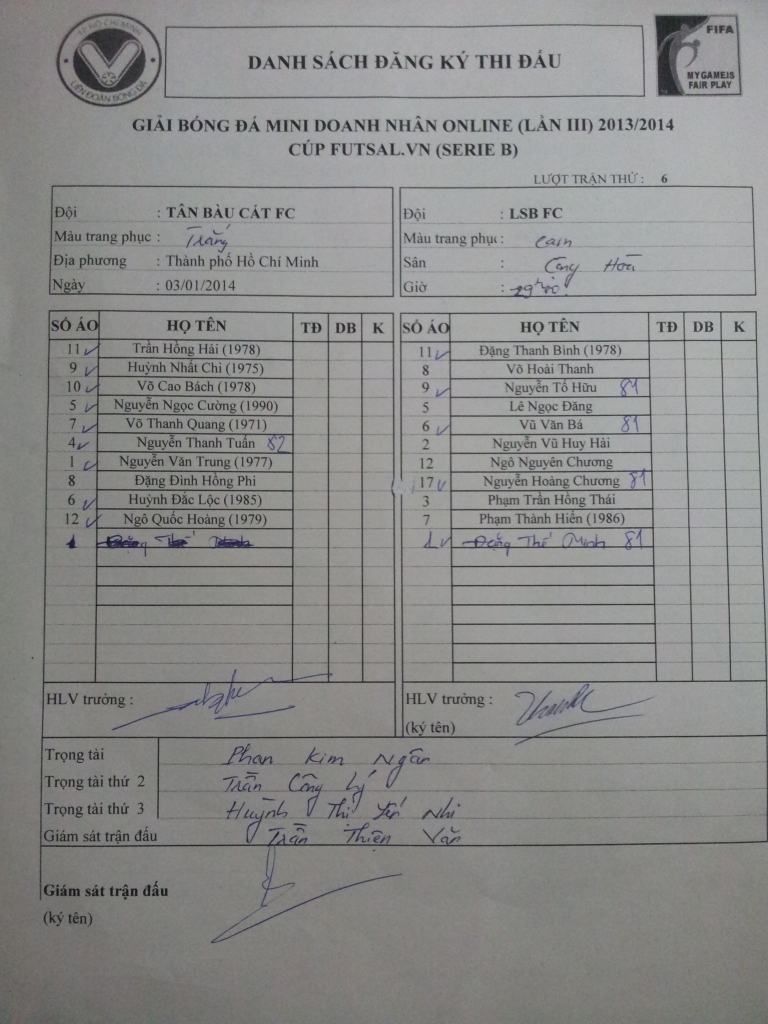 TP HỒ CHÍ MINH
LIÊN ĐOÀN BÓNG ĐÁ
DANH SÁCH ĐĂNG KÝ THI ĐẤU
FIFA
MY GAME IS
FAIR PLAY
GIẢI BÓNG ĐÁ MINI DOANH NHÂN ONLINE (LẦN III) 2013/2014
CÚP FUTSAL.VN (SERIE B)
LƯỢT TRẬN THỨ : 6
Đội : TÂN BÀU CÁT FC
Màu trang phục : Trắng
Địa phương : Thành phố Hồ Chí Minh
Ngày : 03/01/2014
Đội : LSB FC
Màu trang phục : cam
Sân : Cộng Hòa
Giờ :
SỐ ÁO HỌ TÊN TĐ DB K
11 Trần Hồng Hải (1978)
9 Huỳnh Nhất Chi (1975)
10 Võ Cao Bách (1978)
5 Nguyễn Ngọc Cường (1990)
7 Võ Thanh Quang (1971)
4 Nguyễn Thanh Tuấn 82
1 Nguyễn Văn Trung (1977)
8 Đặng Đình Hồng Phi
6 Huỳnh Đắc Lộc (1985)
12 Ngô Quốc Hoàng (1979)
1
HLV trưởng :
SỐ ÁO HỌ TÊN TĐ DB K
11 Đặng Thanh Bình (1978)
8 Võ Hoài Thanh
9 Nguyễn Tố Hữu 81
5 Lê Ngọc Đăng
6 Vũ Văn Bá 81
2 Nguyễn Vũ Huy Hải
12 Ngô Nguyên Chương
17 Nguyễn Hoàng Chương 81
3 Phạm Trần Hồng Thái
7 Phạm Thành Hiển (1986)
1 Đặng Thế Minh 81
HLV trưởng :
(ký tên)
Trọng tài Phan Kim Ngân
Trọng tài thứ 2 Trần Công Lý
Trọng tài thứ 3 Huỳnh Thị Yến Nhi
Giám sát trận đấu Trần Thiện Văn
Giám sát trận đấu
(ký tên)